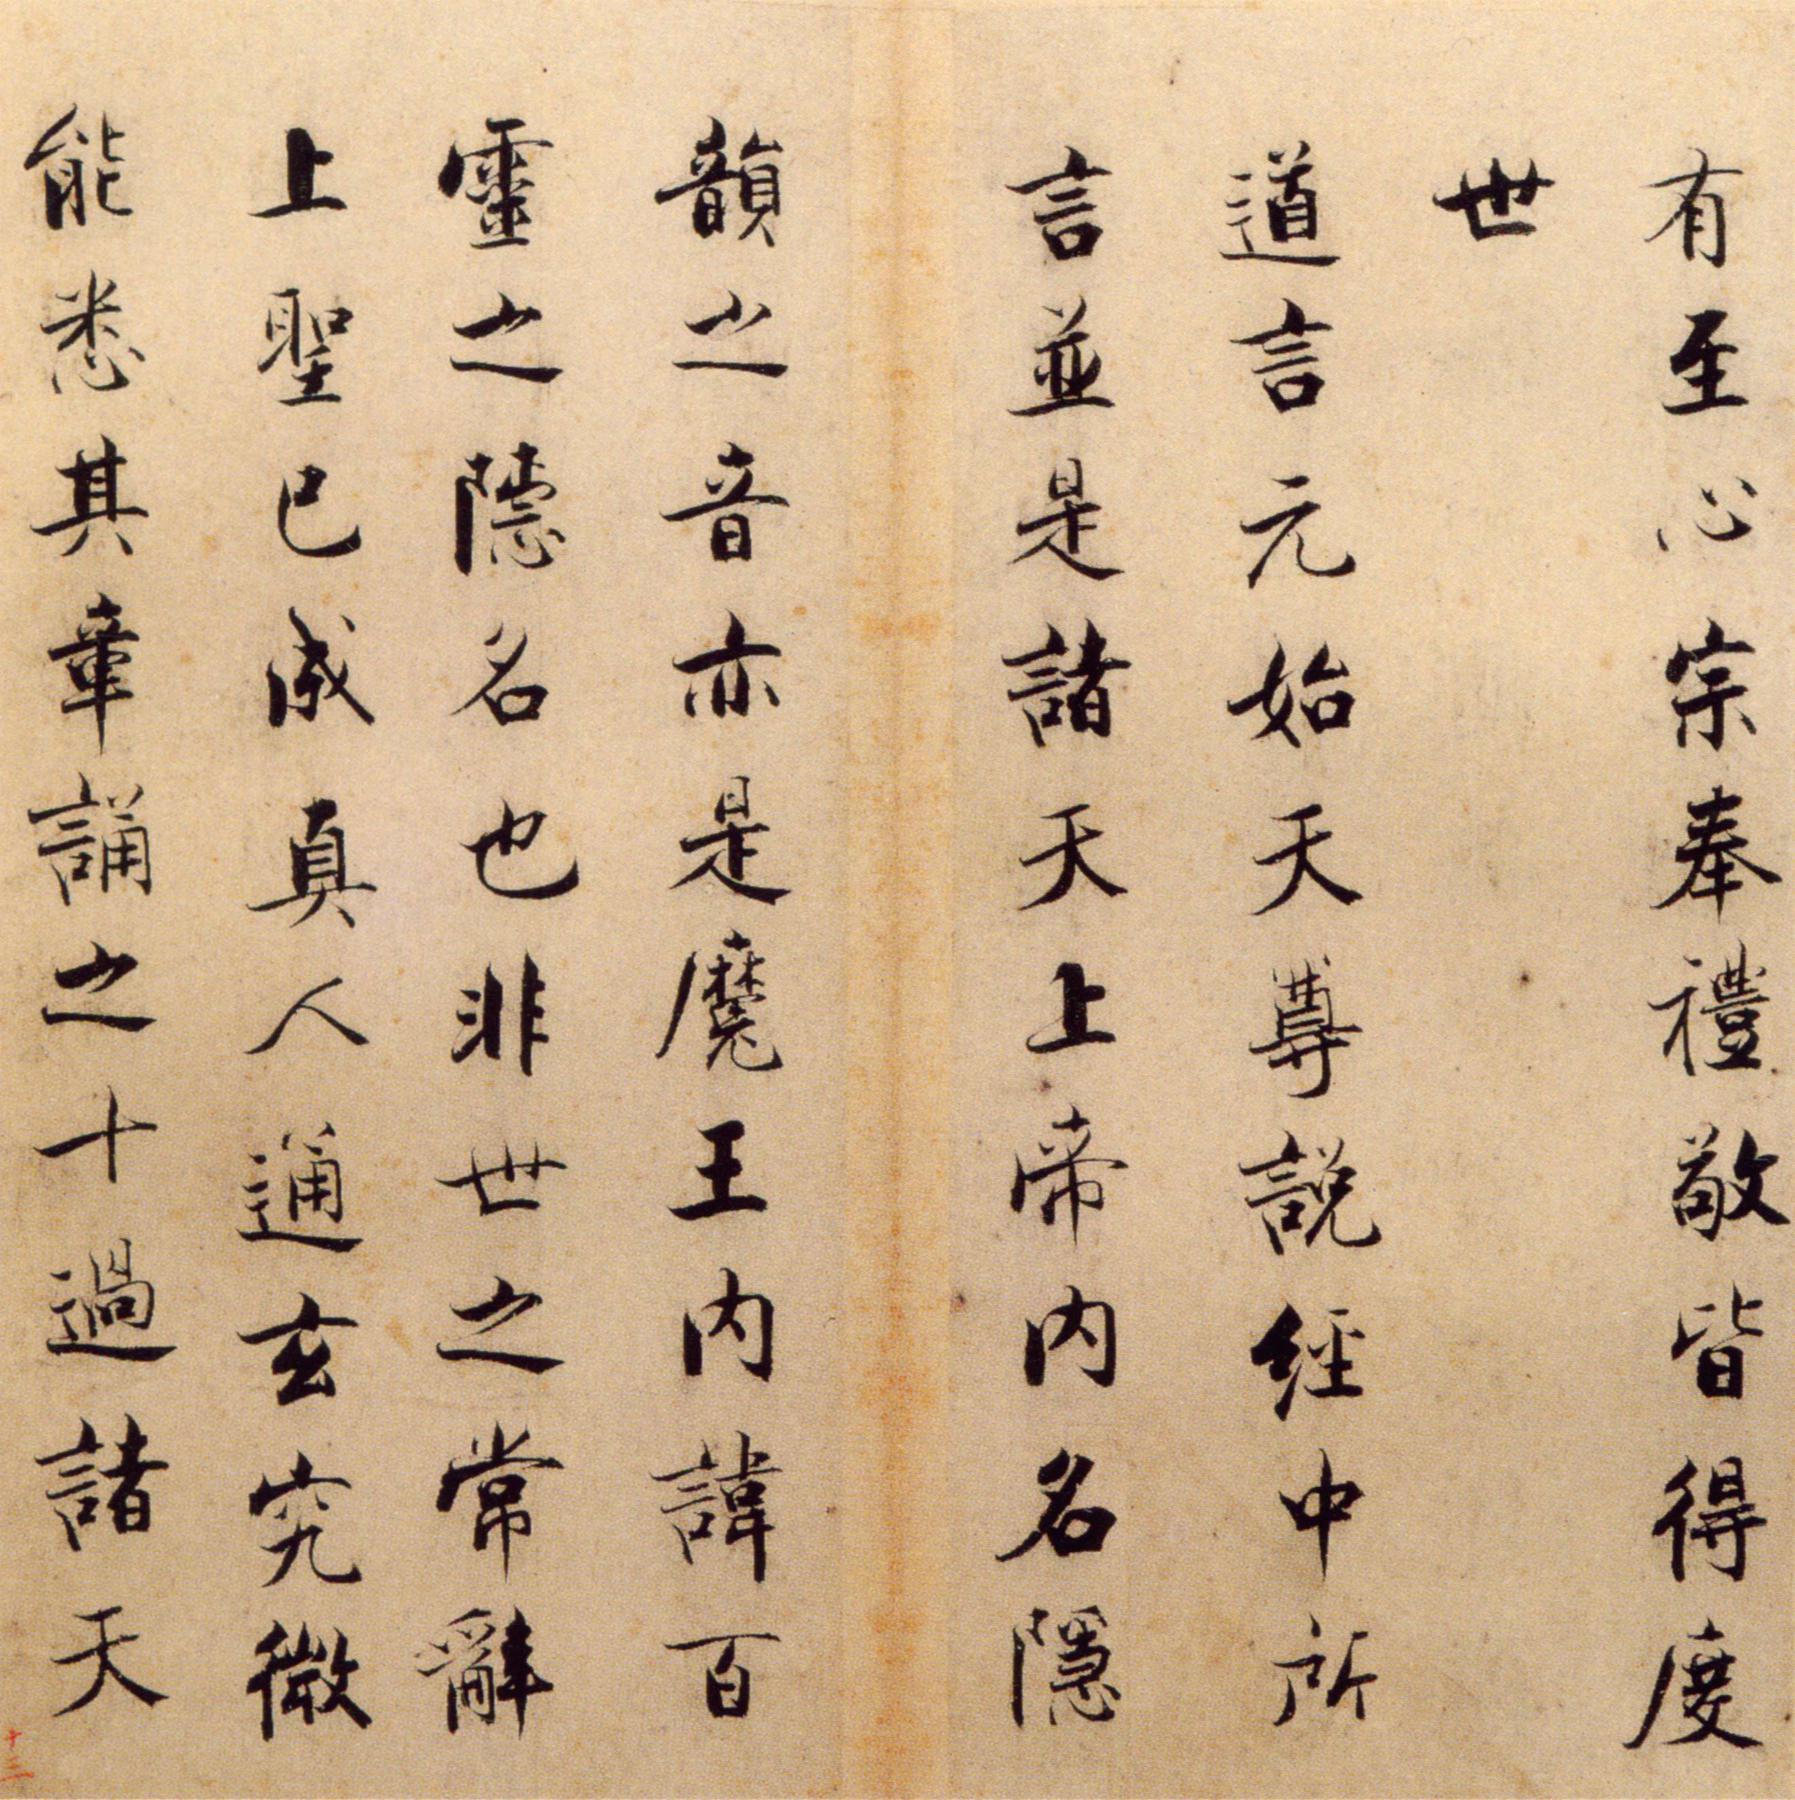 有至心宗奉禮敬皆得度
世
道言元始天尊説經中所
言並是諸天上帝内名隱
韻之音亦是魔王内諱百
靈之隱名也非世之常辭
上聖已成真人通玄究微
能悉其章誦之十過諸天
十三